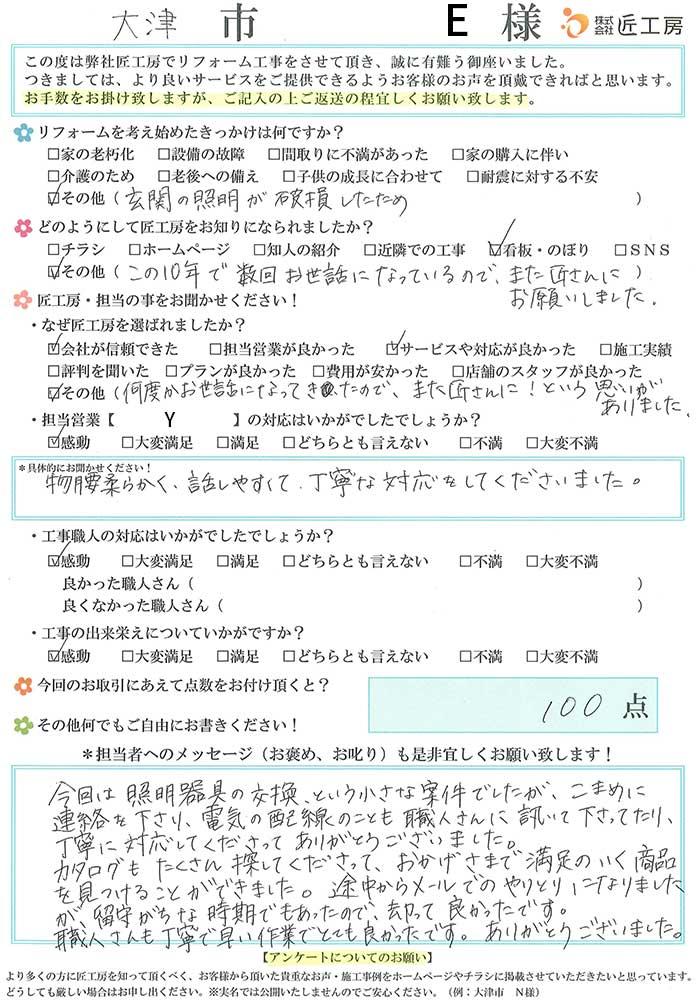 大津 市 E 様 株式会社 匠工房
この度は弊社匠工房でリフォーム工事をさせて頂き、誠に有難う御座いました。
つきましては、より良いサービスをご提供できるようお客様のお声を頂戴できればと思います。
お手数をお掛け致しますが、ご記入の上ご返送の程宜しくお願い致します。
リフォームを考え始めたきっかけは何ですか？
□家の老朽化 □設備の故障 □間取りに不満があった □家の購入に伴い
□介護のため □老後への備え □子供の成長に合わせて □耐震に対する不安
☑その他（玄関の照明が破損したため ）
どのようにして匠工房をお知りになられましたか？
□チラシ □ホームページ □知人の紹介 □近隣での工事 ☑看板・のぼり □ＳＮＳ
☑その他（この10年で数回お世話になっているので、また匠さんに）
お願いしました。
匠工房・担当の事をお聞かせください！
・なぜ匠工房を選ばれましたか？
☑会社が信頼できた □担当営業が良かった ☑サービスや対応が良かった □施工実績
□評判を聞いた □プランが良かった □費用が安かった □店舗のスタッフが良かった
☑その他（何度かお世話になってきたので、また匠さんに！という思いが
ありました。
・担当営業【 Y 】の対応はいかがでしたでしょうか？
☑感動 □大変満足 □満足 □どちらとも言えない □不満 □大変不満
＊具体的にお聞かせください！
物腰柔らかく、話しやすくて、丁寧な対応をしてくださいました。
・工事職人の対応はいかがでしたでしょうか？
☑感動 □大変満足 □満足 □どちらとも言えない □不満 □大変不満
良かった職人さん（ ）
良くなかった職人さん（ ）
・工事の出来栄えについていかがですか？
☑感動 □大変満足 □満足 □どちらとも言えない □不満 □大変不満
今回のお取引にあえて点数をお付け頂くと？ 100 点
その他何でもご自由にお書きください！
＊担当者へのメッセージ（お褒め、お叱り）も是非宜しくお願い致します！
今回は照明器具の交換、という小さな案件でしたが、こまめに
連絡を下さり、電気の配線のことも職人さんに訊いて下さってたり、
丁寧に対応してくださってありがとうございました。
カタログもたくさん探してくださって、おかげさまで満足のいく商品
を見つけることができました。途中からメールでのやりとりになりました
が、留守がちな時期でもあったので、却って良かったです。
職人さんも丁寧で早い作業でとても良かったです。ありがとうございました。
【アンケートについてのお願い】
より多くの方に匠工房を知って頂くべく、お客様から頂いた貴重なお声・施工事例をホームページやチラシに掲載させていただきたいと思っています。
どうしても厳しい場合はお申し出ください。※実名では公開いたしませんのでご安心ください。（例：大津市　Ｎ様）